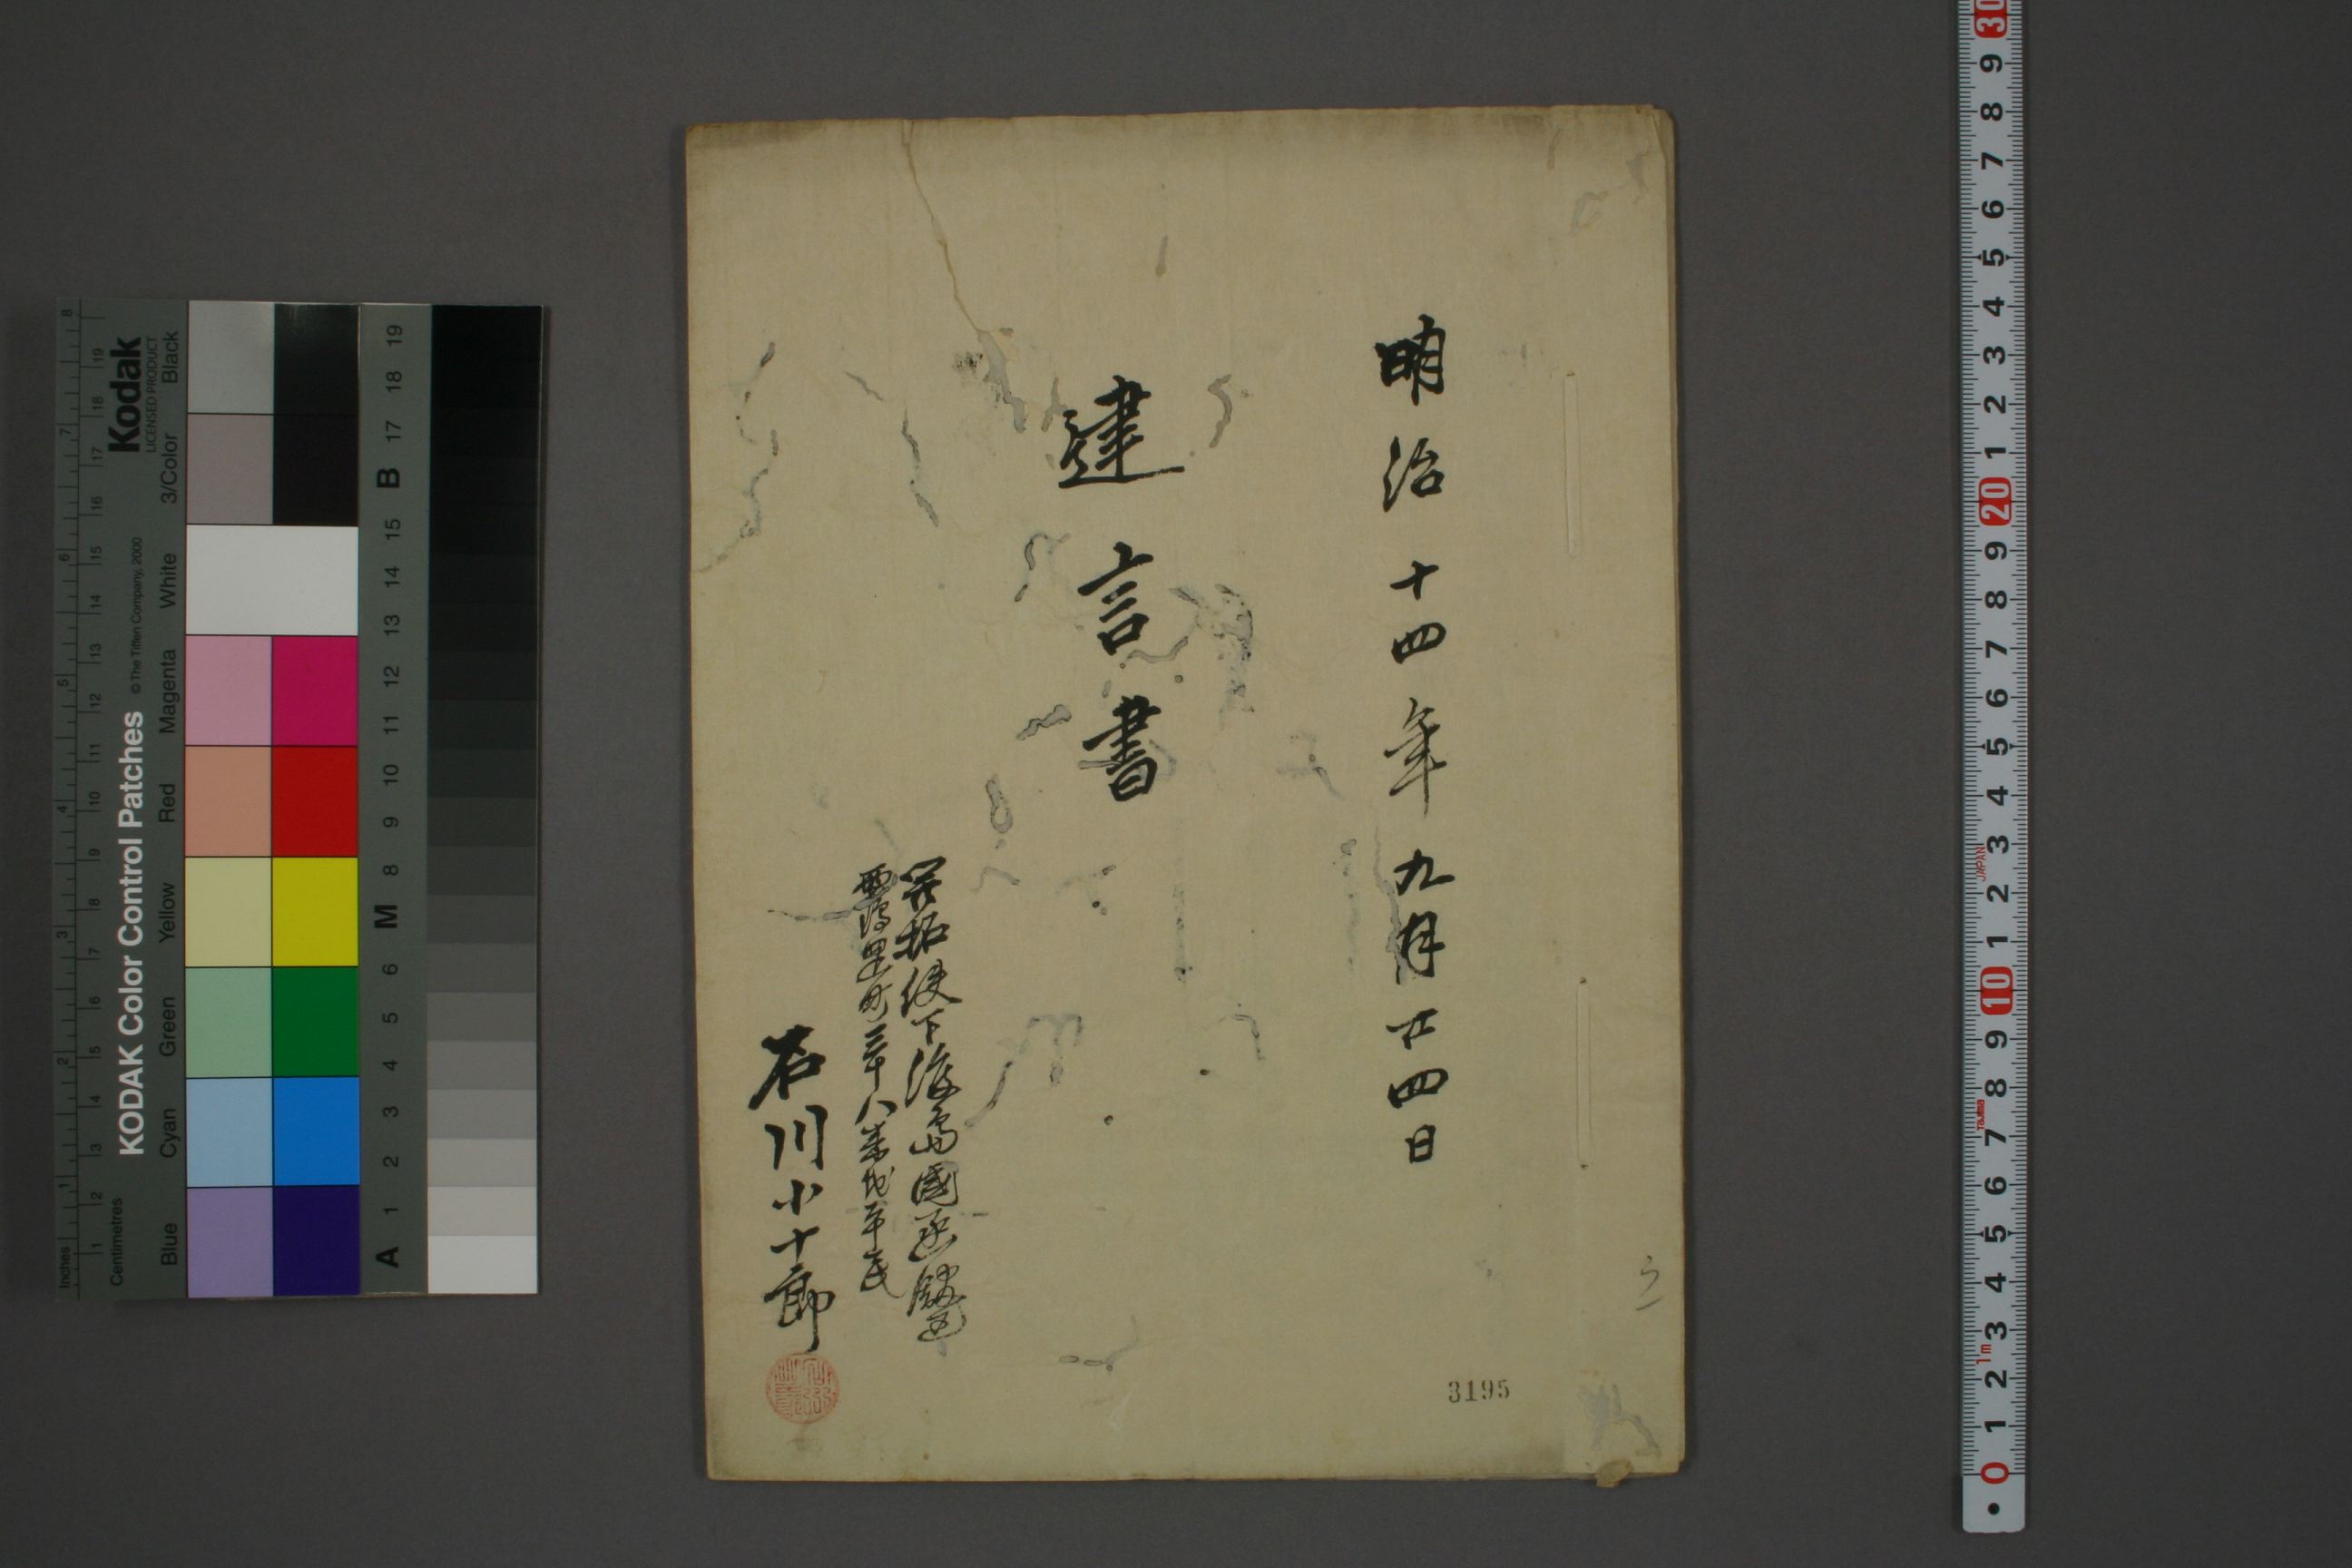 明治十四年九月廿四日
建言書
開拓使下渡島國函館區
西濱里町三十八番地平民
石川小十郎
3195
KODAK Color Control Patches
© The Tiffen Company, 2000
Kodak
LICENSED PRODUCT
Inches
Centimetres
Blue Cyan Green Yellow Red Magenta White 3/Color Black
A 1 2 3 4 5 6 M 8 9 10 11 12 13 14 15 B 17 18 19
JAPAN
Tajima
1m